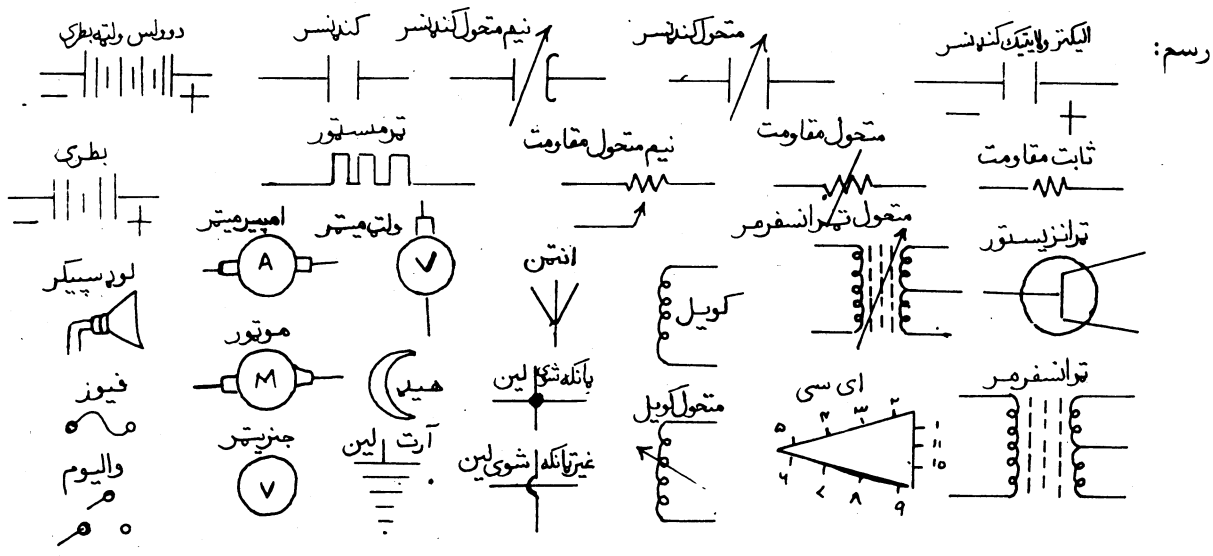 رسم:
الیکترولایتیک کندنسر
متحول کندنسر
نیم متحول کندنسر
کندنسر
دوولس ولټه بطری
ثابت مقاومت
متحول مقاومت
نیم متحول مقاومت
ترمستور
بطری
ترانزیستور
متحول ترانسفرمر
کویل
انتن
ولټ میتر
V
امپیر میتر
A
لوډسپیکر
ترانسفرمر
ای سی
۱
۲
۳
۴
۵
۶
۷
۸
۹
۱۰
۱۱
متحول کویل
لین
هید
موتور
M
فیوز
غیر پانکه شوی لین
آرت لین
جنریتر
V
والیوم